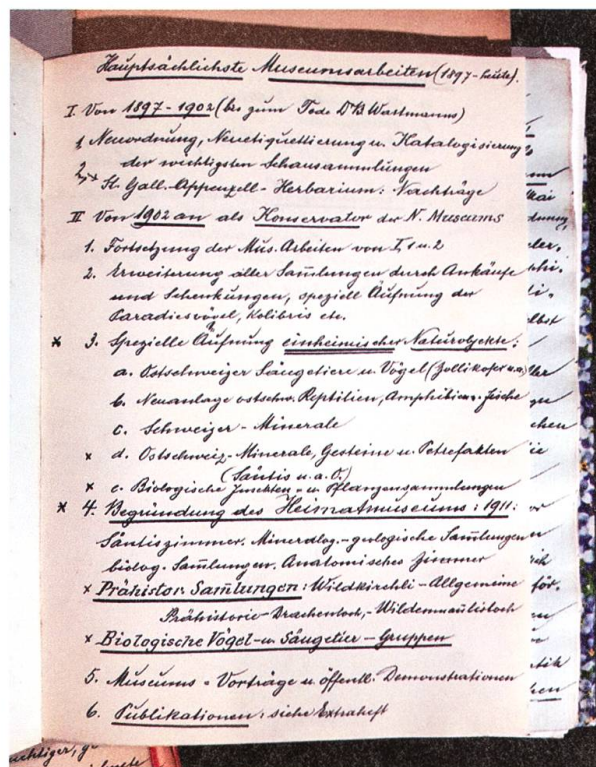 Hauptsächlichste Museumsarbeiten (1897-heute).
I. Von 1897-1902 (bis zum Tode Dr B. Wartmanns)
1. Neuordnung, Neuetiquettierung u. Katalogisierung
der wichtigsten Schausammlungen
2. x St. Gall.-Appenzell-Herbarium: Nachträge
II Von 1902 an als Konservator des N. Museums
1. Fortsetzung der Mus. Arbeiten von I, 1 u. 2
2. Erweiterung aller Sam̄lungen durch Ankäufe
und Schenkungen, speziell Äufnung der
Paradiesvögel, Kolibris etc.
x 3. Spezielle Äufnung einheimischer Naturobjekte:
a. Ostschweizer Säugetiere u. Vögel (Zollikofer u.a.)
b. Neuanlage ostschw. Reptilien, Amphibien, Fische
c. Schweizer-Minerale
x d. Ostschweiz-Minerale, Gesteine u. Petrefakten
(Säntis u.a.O.)
x e. Biologische Insekten- u. Pflanzensammlungen
x 4. Begründung des Heimatmuseums: 1911:
Säntiszimmer. Mineralog.-geologische Sam̄lungen
biolog. Sam̄lungen. Anatomisches Zimmer
x Prähistor. Sam̄lungen: Wildkirchli-Allgemeine
Prähistorie-Drachenloch,-Wildenmannlisloch
x Biologische Vögel-u. Säugetier-Gruppen
5. Museums-Vorträge u. öffentl. Demonstrationen
6. Publikationen: siehe Extraheft